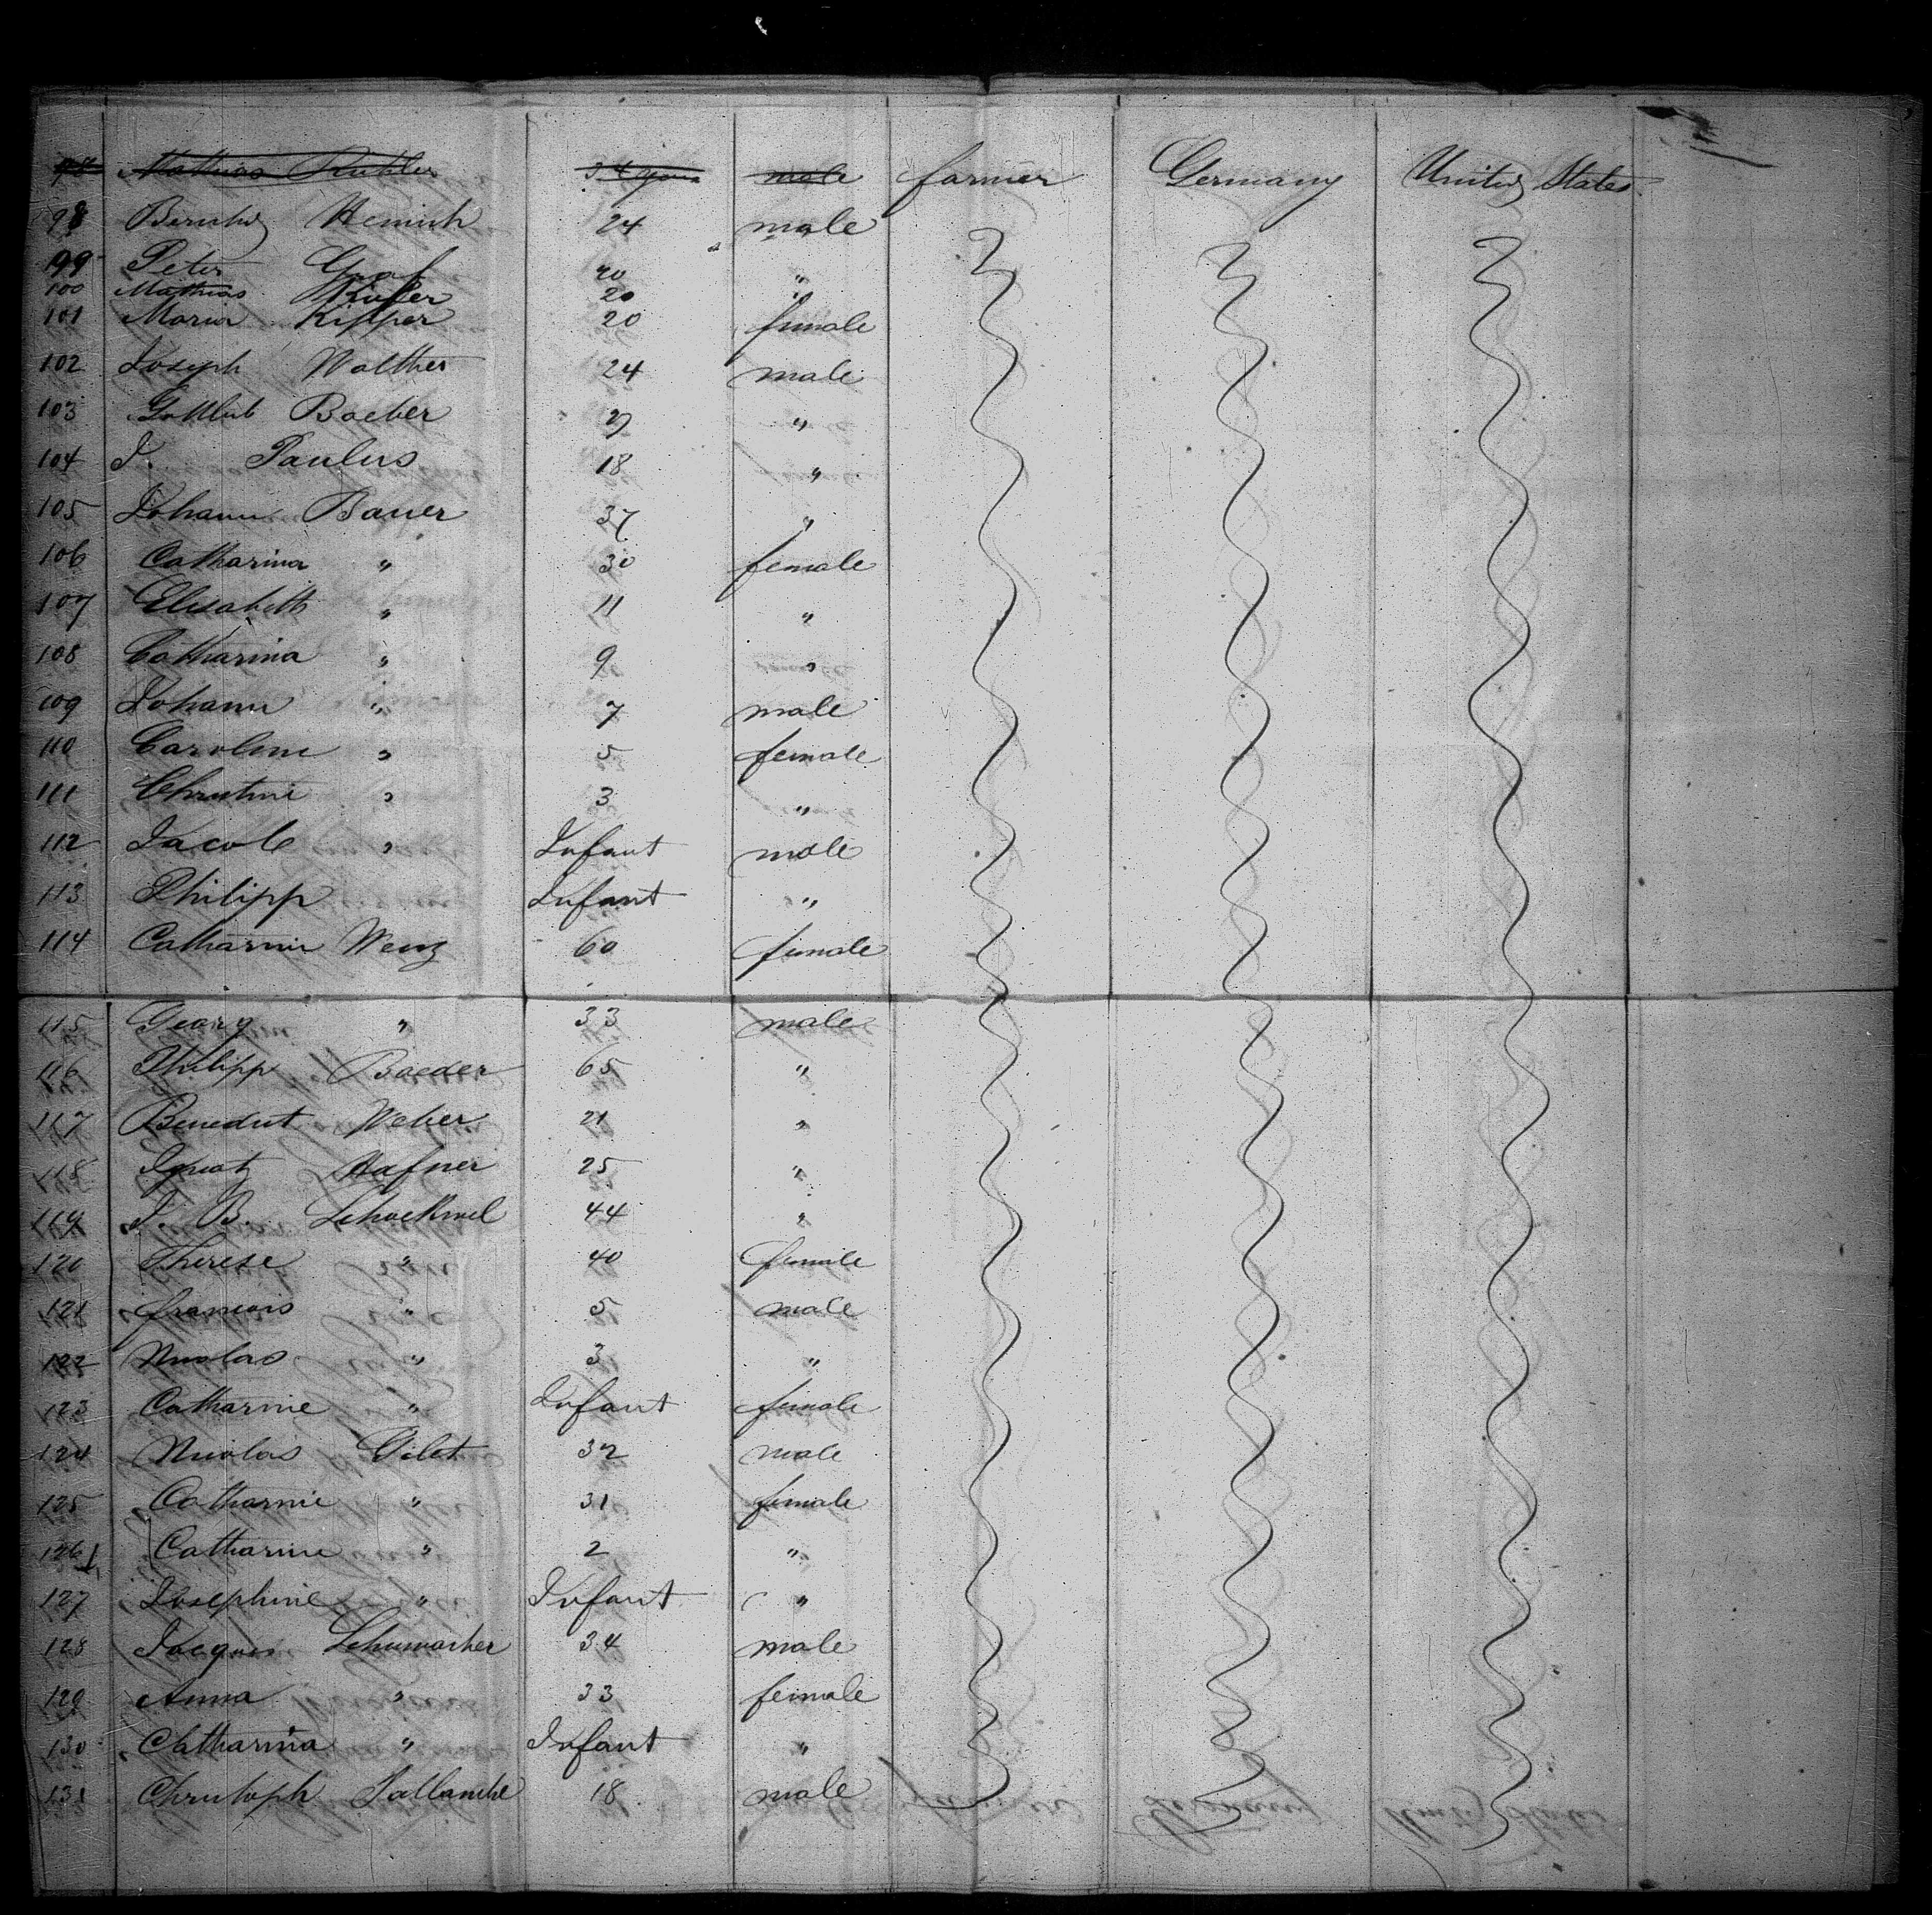 98 Mathias Kuhler 34 years male farmer Germany United States
98 Bernhd Heinrich 24 male
199 Peter Graf 20 "
100 Mathias Kieffer 20 "
101 Maria Kipper 20 female
102 Joseph Walther 24 male
103 Gottlieb Baeber 29 "
104 J. Paulus 18 "
105 Johann Bauer 37 "
106 Catharina " 30 female
107 Elisabeth " 11 "
108 Catharina " 9 "
109 Johann " 7 male
110 Caroline " 5 female
111 Christine " 3 "
112 Jacob " Infant male
113 Philipp Infant "
114 Catharine Wenz 60 female
115 Georg " 33 male
116 Philipp Baeder 65 "
117 Benedict Weber 21 "
118 Ignatz Hafner 25 "
119 J. B. Schockmel 44 "
120 Therese " 40 female
121 francois " 5 male
122 Nicolas " 3 "
123 Catharine " Infant female
124 Nicolas Gilet 32 male
125 Catharine " 31 female
126 Catharine " 2 "
127 Josephine " Infant "
128 Jacques Schumacher 34 male
129 Anna " 33 female
130 Chatharina " Infant "
131 Christoph 18 male